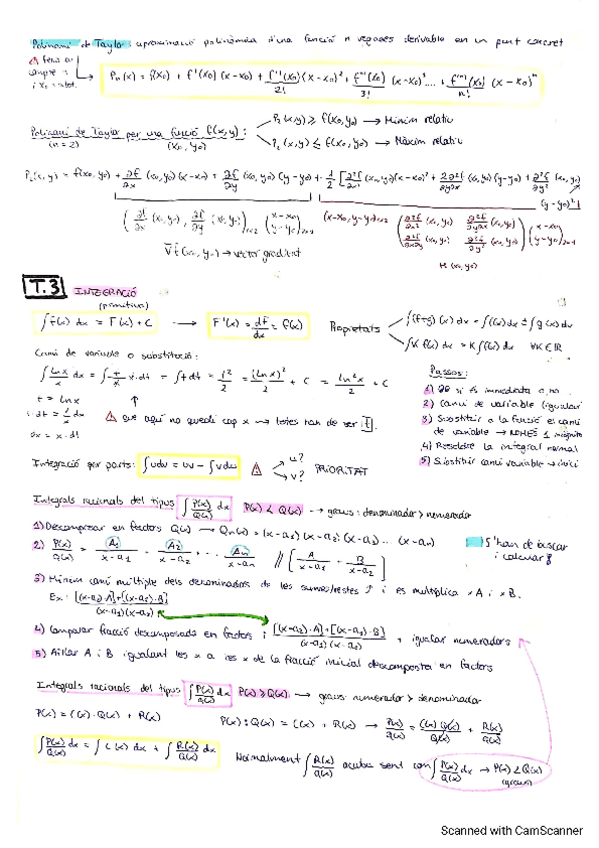 Polinomi de Taylor: aproximació polinòmica d'una funció n vegades derivable en un punt concret
Pn(x) = f(x₀) + f'(x₀)(x-x₀) + f''(x₀)/2! (x-x₀)² + f'''(x₀)/3! (x-x₀)³ .... + fⁿ(x₀)/n! (x-x₀)ⁿ
Polinomi de Taylor per una funció f(x,y):
(n=2) (x₀, y₀)
P₂(x,y) ≥ f(x₀,y₀) → Mínim relatiu
P₂(x,y) ≤ f(x₀,y₀) → Màxim relatiu
∇f(x₀,y₀) → vector gradient
H(x₀,y₀)
T.3 INTEGRACIÓ
(primitiva)
∫f(x) dx = F(x) + C → F'(x) = dF/dx = f(x)
Propietats
∫(f+g)(x) dx = ∫f(x) dx ± ∫g(x) dx
∫K f(x) dx = K ∫f(x) dx ∀K∈ℝ
Canvi de variable o substitució:
∫ ln x/x dx = ∫ t/x x·dt = ∫ t dt = t²/2 = (ln x)²/2 + C = ln²x/2 + C
t = ln x
1·dt = 1/x dx
dx = x·dt
que aquí no quedi cap x → totes han de ser t.
Passos:
1) si és immediata o no
2) Canvi de variable (igualar
3) Substituir a la funció el canvi
de variable → NOMÉS 1 incògnita
4) Resoldre la integral normal
5) Substituir canvi variable → inici
Integració per parts: ∫udv = uv - ∫vdu
u?
v?
PRIORITAT
Integrals racionals del tipus ∫ P(x)/Q(x) dx P(x) < Q(x) → graus: denominador > numerador
1) Descomposar en factors Q(x) → Qn(x) = (x-a₁)(x-a₂)(x-a₃)... (x-an)
2) P(x)/Q(x) = A₁/x-a₁ + A₂/x-a₂ + ... An/x-an // [A/x-a₁ + B/x-a₂]
S'han de buscar
i calcular
3) Mínim comú múltiple dels denominadors de les sumes/restes ↑ i es multiplica x A i x B.
Ex: [(x-a₂)·A]+[(x-a₁)·B]/(x-a₁)(x-a₂)
4) Comparar fracció descomposada en factors i [(x-a₂)·A]+[(x-a₁)·B]/(x-a₁)(x-a₂), igualar numeradors
5) Aïllar A i B igualant les x a les x de la fracció inicial descomposta en factors
Integrals racionals del tipus ∫ P(x)/Q(x) dx P(x) ≥ Q(x) → graus numerador > denominador
P(x) = C(x)·Q(x) + R(x) P(x):Q(x) = C(x) + R(x) → P(x)/Q(x) = C(x)·Q(x)/Q(x) + R(x)/Q(x)
∫ P(x)/Q(x) dx = ∫ C(x) dx + ∫ R(x)/Q(x) dx
Normalment ∫ R(x)/Q(x) acaba sent com ∫ P(x)/Q(x) dx → P(x) < Q(x)
(graus)
Scanned with CamScanner